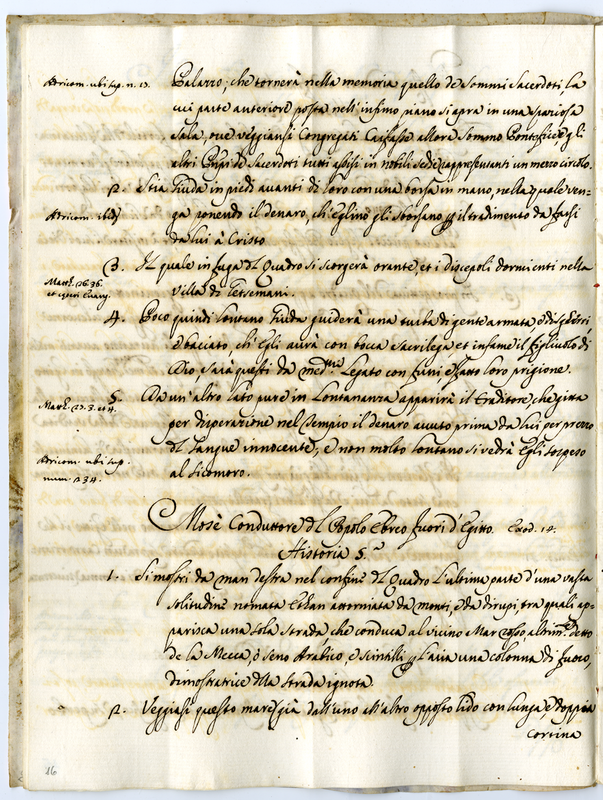 Adricom. ubi sup. n. 13.
Palazzo, che tornerà nella memoria quello de sommi Sacerdoti la
cui parte anteriore posta nell'infimo piano si apra in una spaziosa
Sala, ove veggiansi Congregati Caifasso allora Sommo Pontefice, e gli
altri Prpi de Sacerdoti tutti assisi in nobili sedie rappresentanti un mezzo circolo.
2. Stia Giuda in piedi avanti di loro con una borsa in mano, nella quale ven-
Adricom. ibid
ga ponendo il denaro, ch'eglino gli sborsano p il tradimento da farsi
da lui à Cristo
3. Il quale in fuga dl Quadro si scorgerà orante, et i discepoli dormienti nella
Matt. 26. 36.
et Evang.
Villa di Getsemani.
4. Poco quindi lontano Giuda guiderà una turba di gente armata, e di
e baciato, ch'Egli aurà con bocca sacrilega et infame il figliuolo di
Dio, sarà questi da med.mi Legato con funi e fatto loro prigione.
5. Da un'altro lato pure in Lontananza apparirà il traditore, che gitta
Matt. 27. 3. et 4.
per disperazione nel Tempio il denaro avuto prima da lui per prezzo
dl sangue innocente, e non molto lontano si vedrà Egli sospeso
Adricom. ubi sup.
num. 234.
al sicomoro.
Mosè Conduttore dl Popolo Ebreo fuori d'Egitto. Exod. 14.
Historia 5.a
1. Si mostri da man destra nel confine dl Quadro l'ultima parte d'una vasta
solitudine nomata Ethan attorniata da monti, e da dirupi, tra quali ap-
parisca una sola strada, che conduca al vicino Mar rosso altrim.te detto
de la Mecca, ò seno Arabico, e scintilli p l'aria una colonna di fuoco,
dimostratrice dlla strada ignota
2. Veggiasi questo mare già dall'uno all'altro opposto lido con lunga, e doppia
cortina
16